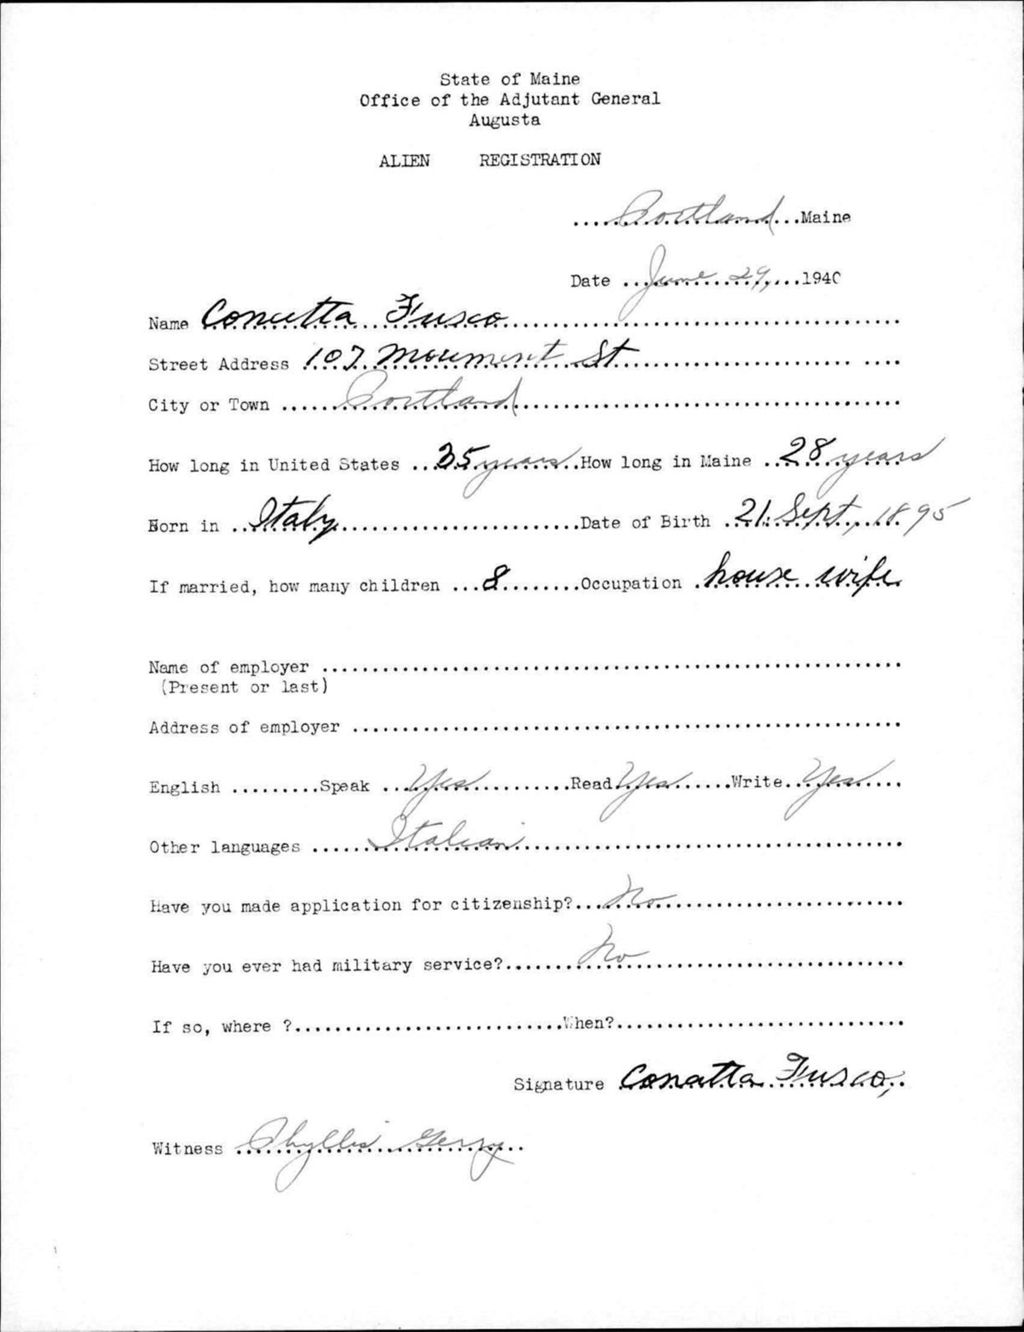 State of Maine
Office of the Adjutant General
Augusta
ALIEN REGISTRATION
Portland Maine
Date June 29, 1940
Name Concetta Fusco
Street Address 107 Monument St
City or Town Portland
How long in United States 35 years How long in Maine 28 years
Born in Italy Date of Birth 21 Sept, 1895
If married, how many children 8 Occupation house wife
Name of employer
(Present or last)
Address of employer
English Speak Yes Read Yes Write Yes
Other languages Italian
Have you made application for citizenship? No
Have you ever had military service? No
If so, where ? When?
Signature Conatta Fusco,
Witness Phyllis Gerry